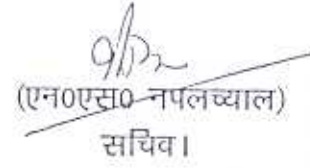 (एन0एस0 नपलच्याल)
सचिव।